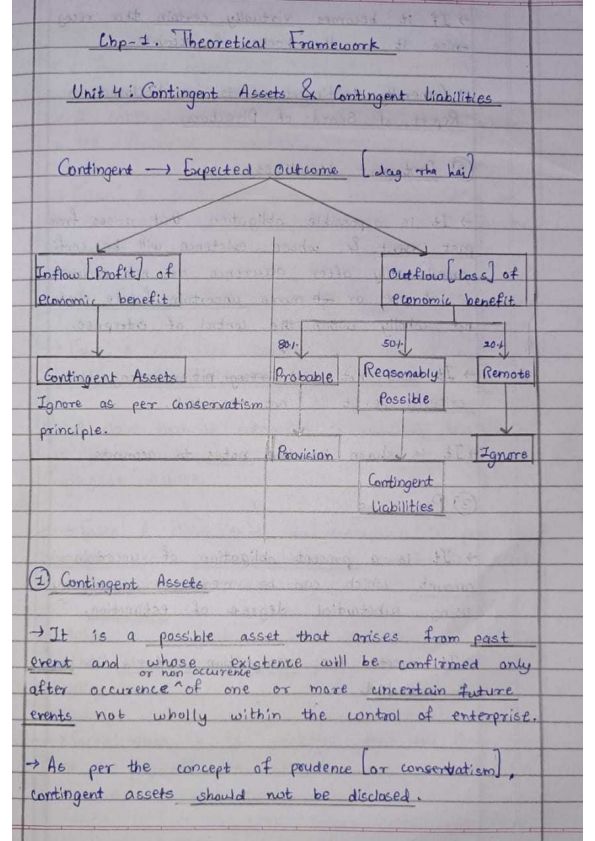 Chp-1. Theoretical Framework
Unit 4: Contingent Assets & Contingent Liabilities
Contingent → Expected Outcome [dag rha hai]
Inflow [Profit] of
economic benefit
Outflow [Loss] of
economic benefit
80%
50%
20%
Contingent Assets
Ignore as per conservatism
principle.
Probable
Reasonably
Possible
Remote
Provision
Contingent
Liabilities
Ignore
① Contingent Assets
→ It is a possible asset that arises from past
event and whose existence will be confirmed only
or non occurence
after occurence ^ of one or more uncertain future
events not wholly within the control of enterprise.
→ As per the concept of prudence [or conservatism],
contingent assets should not be disclosed.